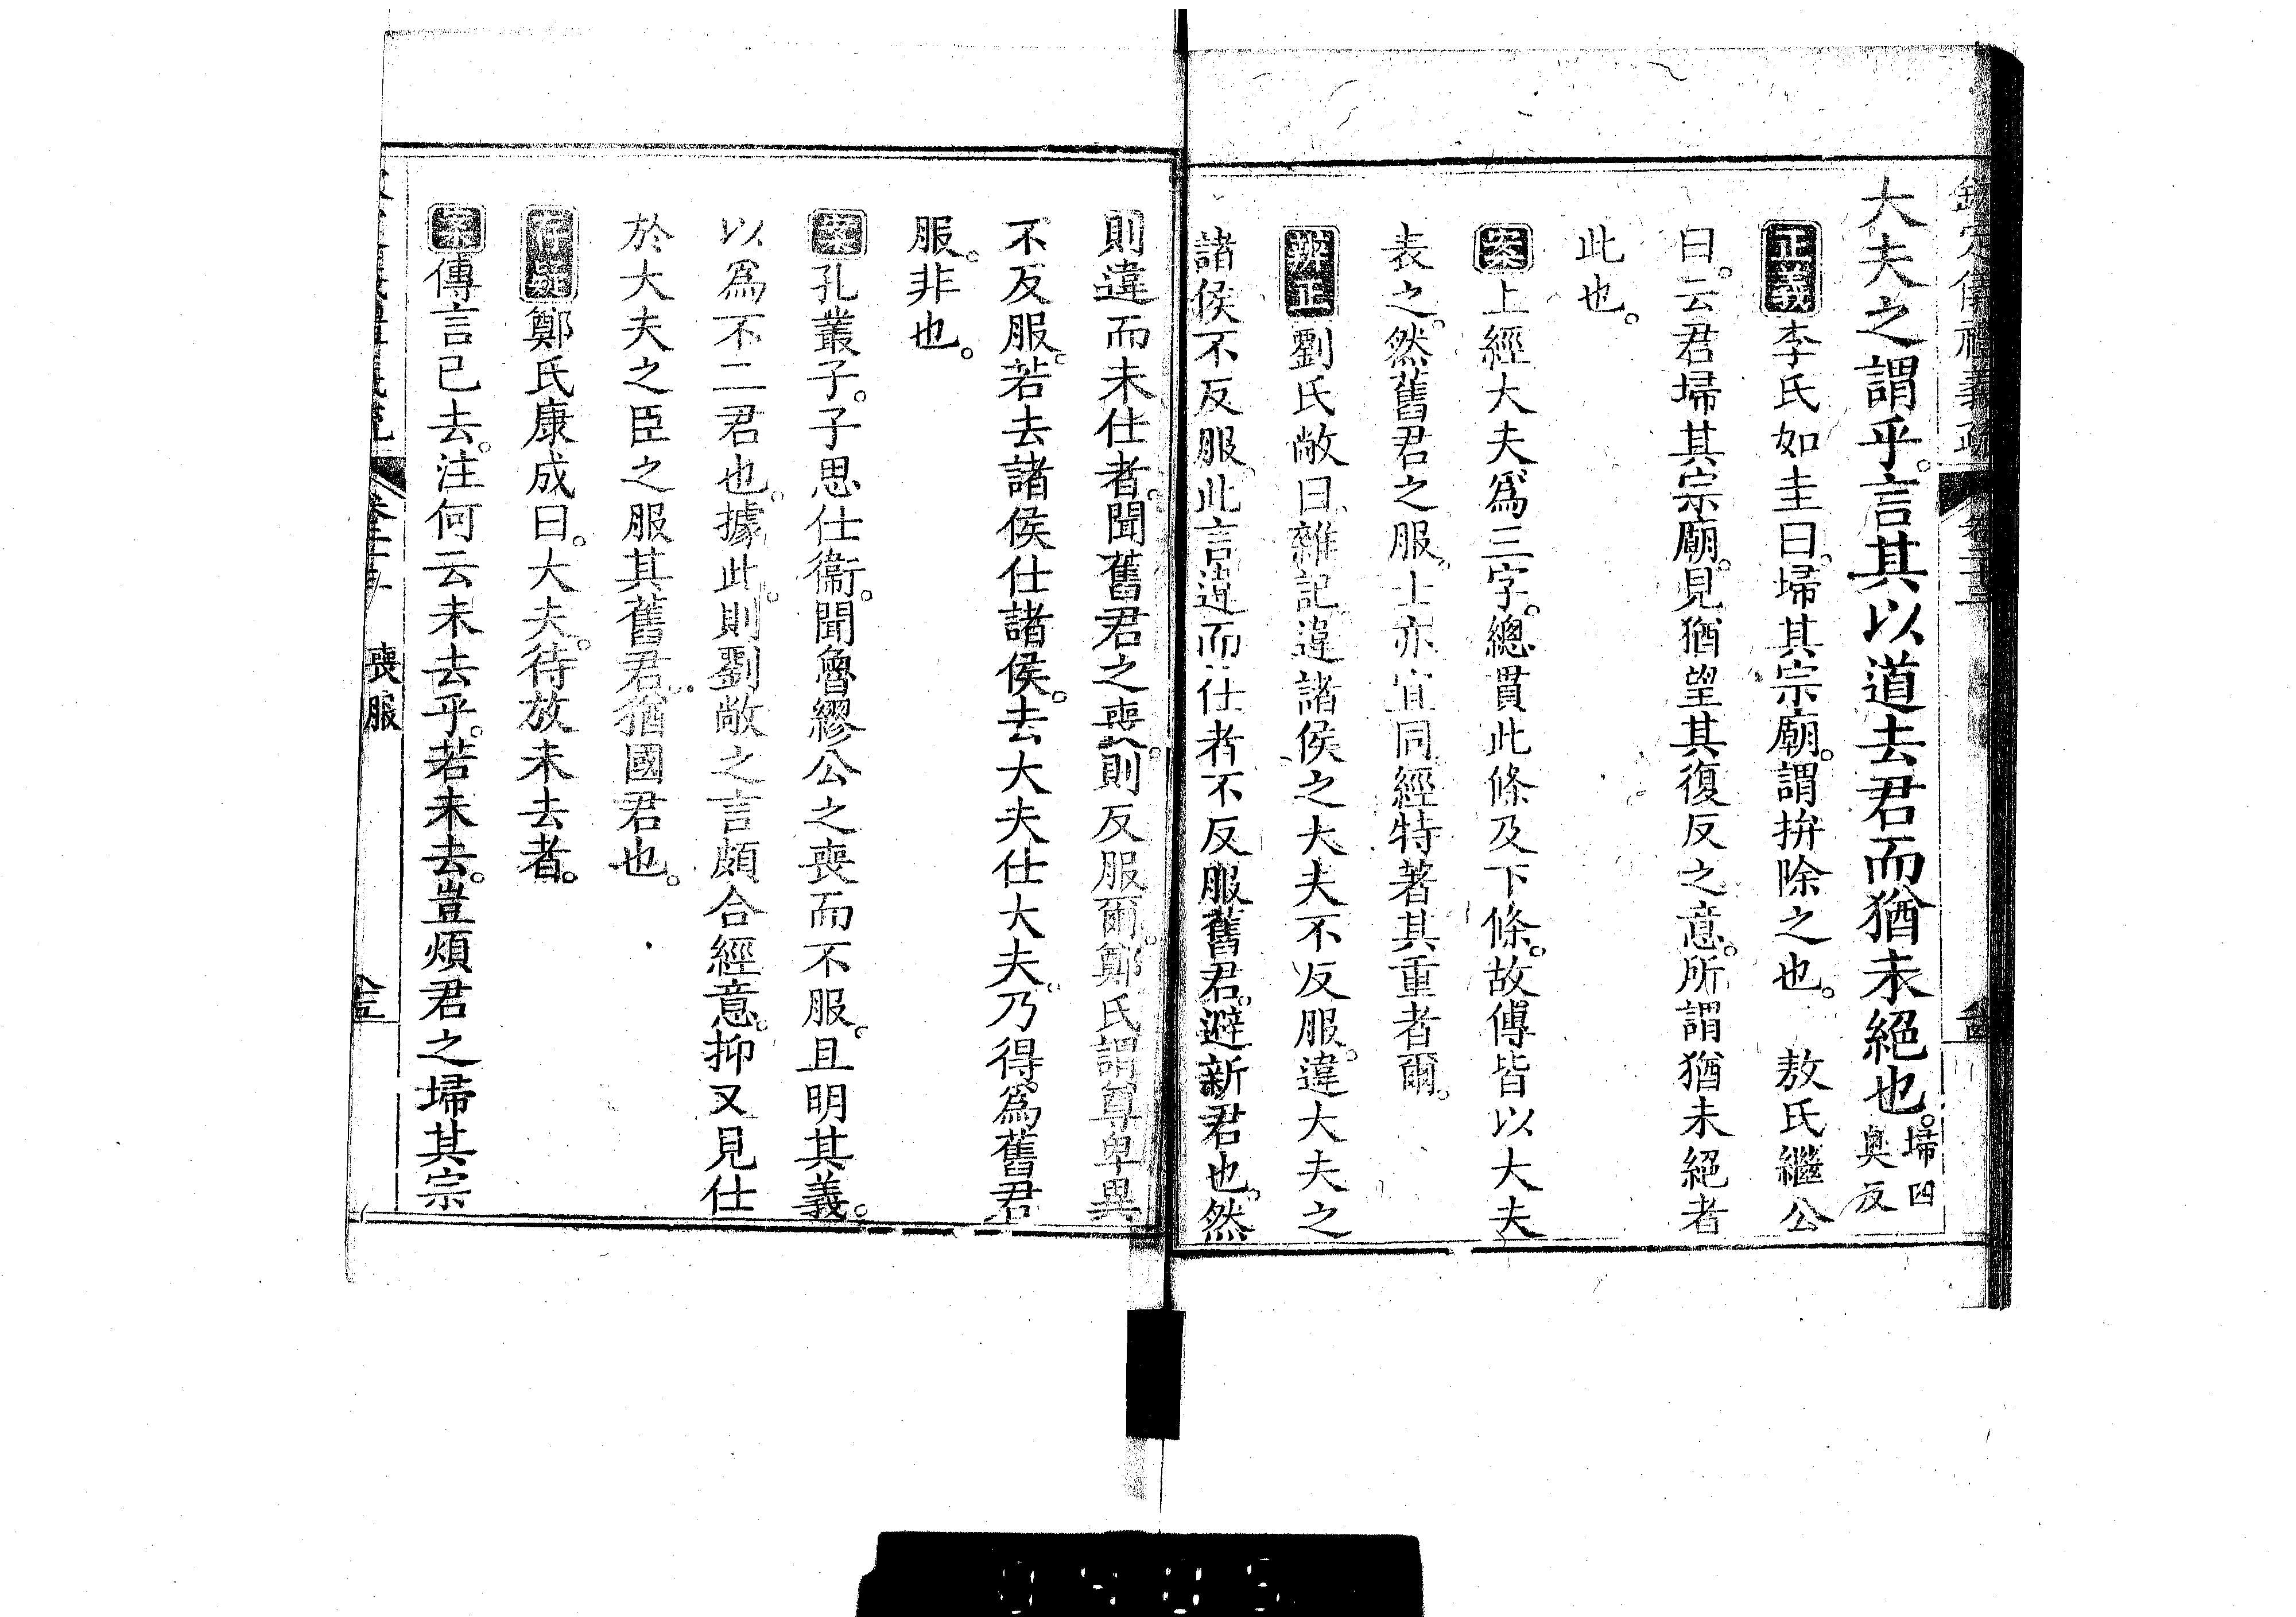 欽定儀禮義疏 卷二十三
大夫之謂乎。言其以道去君而猶未絕也。埽四奧反
正義李氏如圭曰。埽其宗廟。謂拚除之也。 敖氏繼公
曰。云君埽其宗廟。見猶望其復反之意。所謂猶未絕者
此也。
案上經大夫爲三字。總貫此條及下條。故傳皆以大夫
表之。然舊君之服。士亦宜同。經特著其重者爾。
辨正劉氏敞曰。雜記。違諸侯之大夫不反服。違大夫之
諸侯不反服。此言違而仕者不反服舊君。避新君也。然
則違而未仕者。聞舊君之喪。則反服爾。鄭氏謂尊卑異
不反服。若去諸侯仕諸侯。去大夫仕大夫。乃得爲舊君
服。非也。
案孔叢子。子思仕衞。聞魯繆公之喪而不服。且明其義。
以爲不二君也。據此。則劉敞之言頗合經意。抑又見仕
於大夫之臣之服其舊君。猶國君也。
存疑鄭氏康成曰。大夫。待放未去者。
案傳言已去。注何云未去乎。若未去。豈煩君之埽其宗
喪服